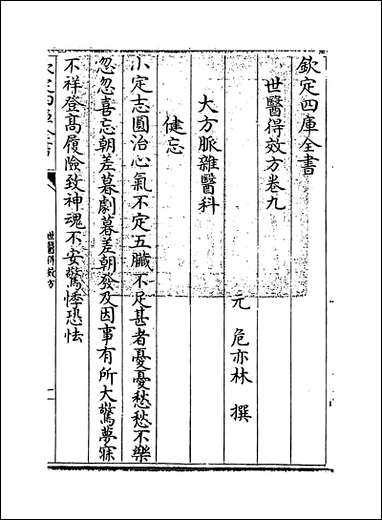 欽定四庫全書
世醫得效方卷九
元 危亦林 撰
大方脈雜醫科
健忘
小定志圓治心氣不定五臟不足甚者憂憂愁愁不樂
忽忽喜忘朝差暮劇暮差朝發及因事有所大驚夢寐
不祥登高履險致神魂不安驚悸恐怯
欽定四庫全書
世醫得效方
一